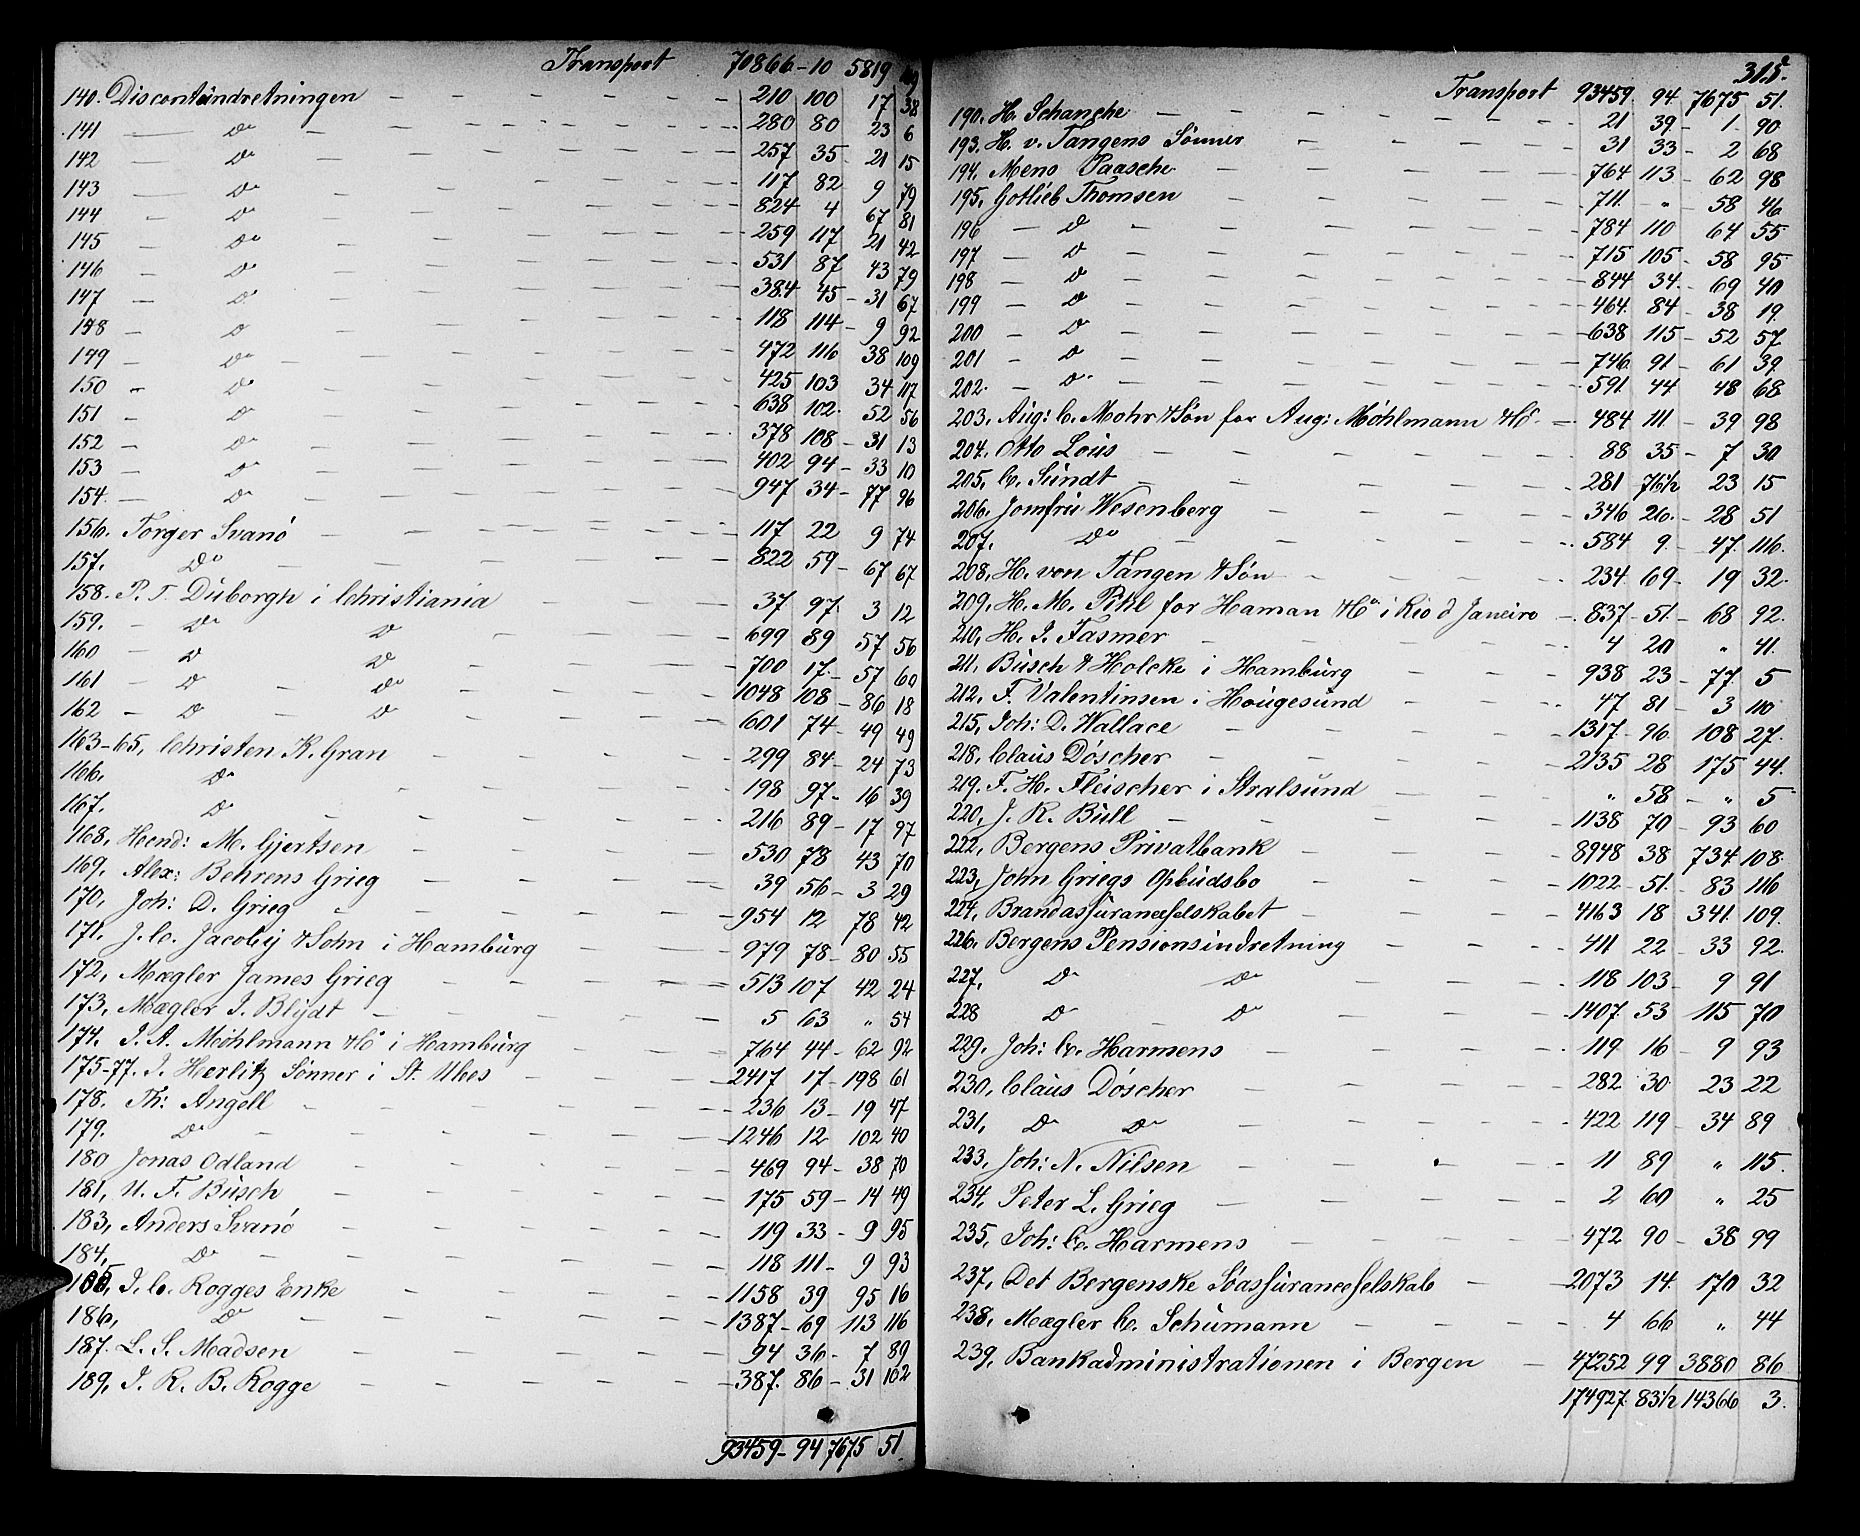 Transport 70866 - 10 5819 69
140. Discontoindretningen 210 100 17 38
141 — Do 280 80 23 6
142 — Do 257 35 - 21 15
143 — Do 117 82 9 79
144 — Do 824 4 67 81
145 — Do 259 117 21 42
146 — Do 531 87 43 79
147 — Do 384 45 - 31 67
148 — Do 118 114 - 9 92
149 — Do 472 116 38 109
150 - Do 425 103 34 117
151 - Do 638 102 52 56
152 - Do 378 108 - 31 13
153 - Do 402 94 - 33 10
154. — Do 947 34 - 77 96
156. Torger Svanö 117 22 9 74
157. Do 822 59 - 67 67
158. P. T. Düborgh i Christiania 37 97 3 12
159. - Do Do 699 89 57 56
160 - Do Do 700 17 - 57 60
161 - Do - Do 1048 108 - 86 18
162 - Do - Do 601 74 - 49 49
163-65, Christen K. Gran 299 84 - 24 73
166. Do 198 97 - 16 39
167. Do 216 89 - 17 97
168, Hend: M. Gjertsen 530 78 43 70
169, Alex: Behrens Grieg 39 56 - 3 29
170, Joh: D. Grieg 954 12 78 42
171. J. C. Jacoby & Sohn i Hamburg 979 78 - 80 55
172, Mægler James Grieg 513 107 42 24
173, Mægler J. Blydt 5 63 " 54
174. J. A. Möhlmann & Co i Hamburg 764 44 - 62 92
175-77. J. Herlitz Sønner i St. Ubes 2417 17 - 198 61
178. Th: Angell 236 13 - 19 47
179. Do 1246 12 102 40
180 Jonas Odland 469 94 - 38 70
181, U. F. Büsch 175 59 - 14 49
183, Anders Svanö 119 33 - 9 95
184, Do 118 111 - 9 93
185, J. C. Rogges Enke 1158 39 95 16
186, Do 1387 - 69 113 116
187. L. S. Madsen 94 36 - 7 89
189, J. R. B. Rogge 387. 86 - 31 102
93459 - 94 7675 51
315.
Transport 93459. 94. 7675 51.
190. H. Schanche 21 39 - 1 - 90
193. H. v. Tangens Sönner 31 33 - 2 68
194. Mens Paasche 764 113 - 62 98
195, Gotlieb Thomsen 711. " - 58 46
196 — Do 784 110 64 55
197 — Do 715 105 - 58 95
198 — Do 844 34 - 69 40
199 — Do 464 84 - 38 19
200 — Do 638 115 - 52 57
201 — Do 746 91 - 61 39
202. — Do 591 44 - 48 68
203. Aug: C. Mohr & Søn for Aug: Möhlmann & Co 484 111 - 39 98
204. Otto Loüs 88 35 - 7 30
205. C. Sündt 281 76½ 23 15
206. Jomfrü Wesenberg 346 26 - 28 51
207. Do 584 9 - 47. 116.
208. H. von Tangen & Søn 234 69 - 19 32.
209. H. M. Pihl for Haman & Co i Rio d Janeiro 837 - 51. - 68 92.
210, H. J. Fasmer 4 20 " 41.
211. Büsch & Holcke i Hamburg 938 23 - 77. 5
212. F. Valentinsen i Hougesund 47 81 - 3 110
215, Joh: D. Wallace 1317 - 96 108 27.
218. Claüs Döscher 2135 28 175 44.
219. F. H. Fleischer i Stralsund " 58 - " 5
220, J. R. Büll 1138 70 - 93 60
222. Bergens Privatbank 8948 38 734 108
223. John Griegs Opbüdsbo 1022 - 51 - 83 116
224. Brandassüranceselskabet 4163 18 341. 109.
226. Bergens Pensionsindretning 411 22 - 33 92.
227, Do Do 118 103 - 9 91
228 Do - Do 1407 53 115 70
229. Joh: C. Harmens 119 16 - 9 93
230. Claüs Döscher 282 30 23 22
231, Do Do 422 119 - 34 89
233. Joh: N. Nilsen 11 89 " 115.
234. Peter L. Grieg 2 60 " 25
235. Joh: C. Harmens 472 90 - 38 99
237. Det Bergenske Söassüranceselskab 2073 14. 170 32
238. Mægler C. Schümann 4 66 " 44
239. Bankadministrationen i Bergen 47252 99 3880 86
174927. 83½ 14366 3.